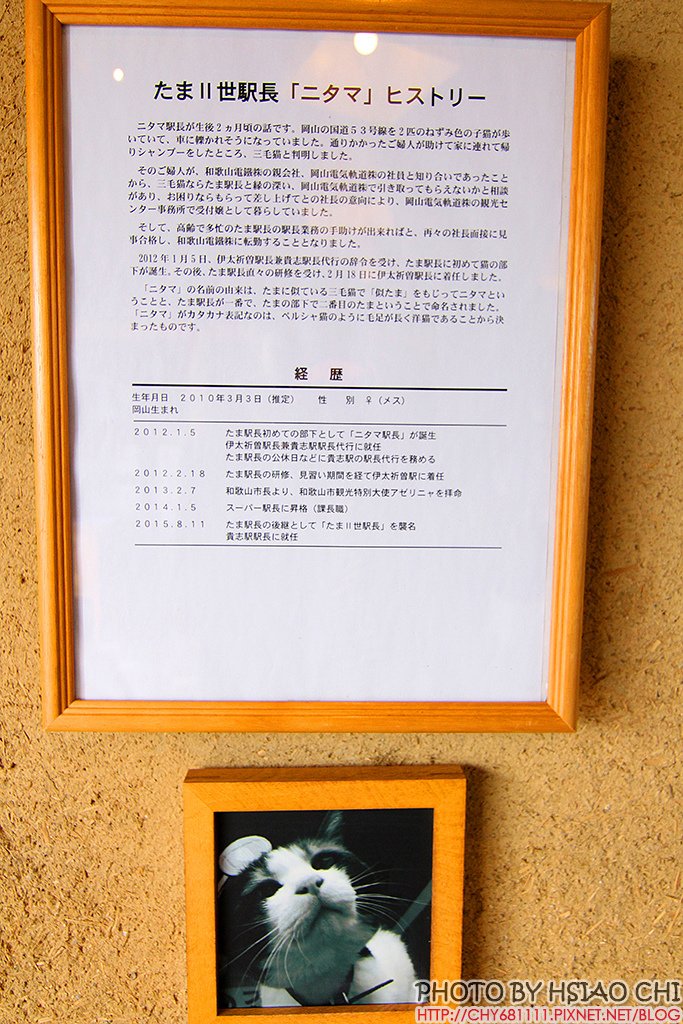 たまⅡ世駅長「ニタマ」ヒストリー
ニタマ駅長が生後2ヵ月頃の話です。岡山の国道53号線を2匹のねずみ色の子猫が歩
いていて、車に轢かれそうになっていました。通りかかったご婦人が助けて家に連れて帰
りシャンプーをしたところ、三毛猫と判明しました。
そのご婦人が、和歌山電鐵株の親会社、岡山電気軌道株の社員と知り合いであったこと
から、三毛猫ならたま駅長と縁の深い、岡山電気軌道株で引き取ってもらえないかと相談
があり、お困りならもらって差し上げてとの社長の意向により、岡山電気軌道株の観光セ
ンター事務所で受付嬢として暮らしていました。
そして、高齢で多忙のたま駅長の駅長業務の手助けが出来ればと、再々の社長面接に見
事合格し、和歌山電鐵株に転勤することとなりました。
2012年1月5日、伊太祈曽駅長兼貴志駅長代行の辞令を受け、たま駅長に初めて猫の部
下が誕生。その後、たま駅長直々の研修を受け、2月18日に伊太祈曽駅長に着任しました。
「ニタマ」の名前の由来は、たまに似ている三毛猫で「似たま」をもじってニタマとい
うことと、たま駅長が一番で、たまの部下で二番目のたまということで命名されました。
「ニタマ」がカタカナ表記なのは、ペルシャ猫のように毛足が長く洋猫であることから決
まったものです。
経 歴
生年月日 2010年3月3日（推定） 性 別 ♀（メス）
岡山生まれ
2012.1.5 たま駅長初めての部下として「ニタマ駅長」が誕生
伊太祈曽駅長兼貴志駅長代行に就任
たま駅長の公休日などに貴志駅の駅長代行を務める
2012.2.18 たま駅長の研修、見習い期間を経て伊太祈曽駅に着任
2013.2.7 和歌山市長より、和歌山市観光特別大使アゼリニャを拝命
2014.1.5 スーパー駅長に昇格（課長職）
2015.8.11 たま駅長の後継として「たまⅡ世駅長」を襲名
貴志駅駅長に就任
PHOTO BY HSIAO CHI
HTTP://CHY681111.PIXNET.NET/BLOG